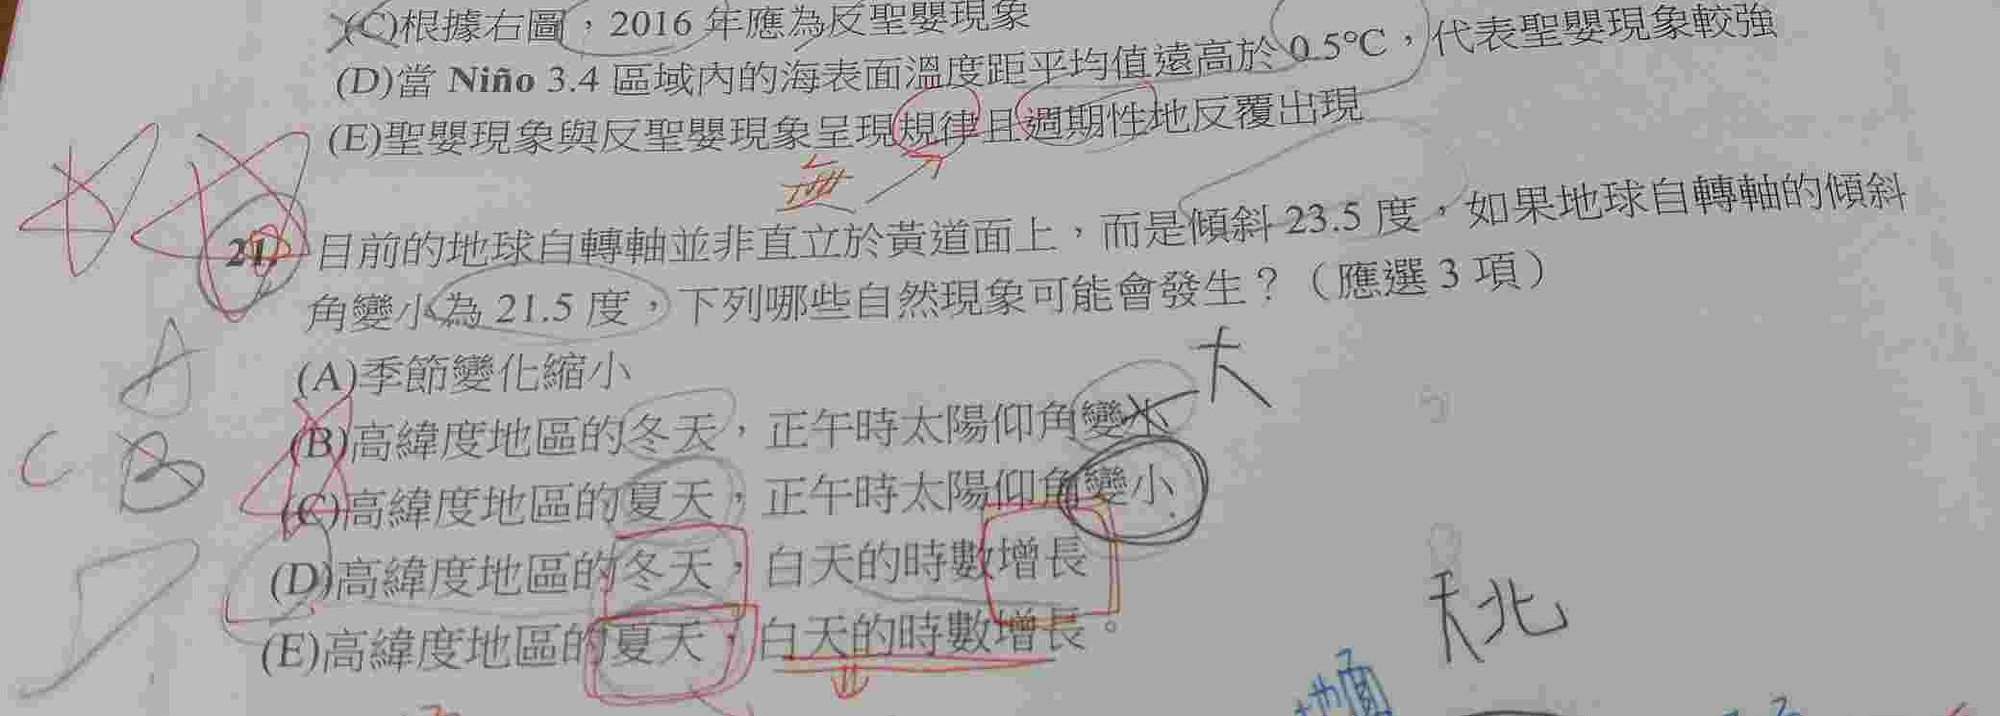 (C)根據右圖，2016 年應為反聖嬰現象
(D)當 Niño 3.4 區域內的海表面溫度距平均值遠高於 0.5°C，代表聖嬰現象較強
(E)聖嬰現象與反聖嬰現象呈現規律且週期性地反覆出現
無
21. 目前的地球自轉軸並非直立於黃道面上，而是傾斜 23.5 度，如果地球自轉軸的傾斜
角變小為 21.5 度，下列哪些自然現象可能會發生？（應選 3 項）
A
(A)季節變化縮小
大
(B)高緯度地區的冬天，正午時太陽仰角變小
C B
(C)高緯度地區的夏天，正午時太陽仰角變小
(D)高緯度地區的冬天，白天的時數增長
(E)高緯度地區的夏天，白天的時數增長。
北